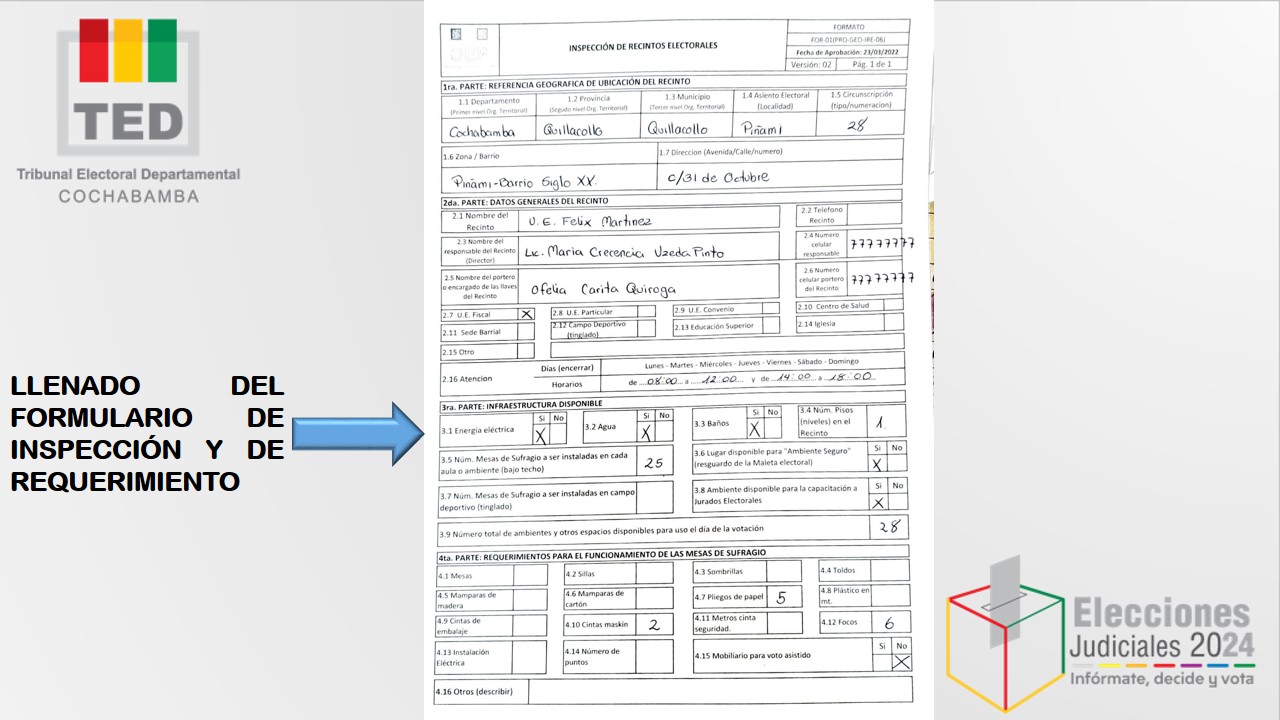 TED
Tribunal Electoral Departamental
COCHABAMBA
LLENADO DEL
FORMULARIO DE
INSPECCIÓN Y DE
REQUERIMIENTO
INSPECCIÓN DE RECINTOS ELECTORALES
FORMATO
FOR-01(PRO-GEO-IRE-06)
Fecha de Aprobación: 23/03/2022
Versión: 02 Pág. 1 de 1
1ra. PARTE: REFERENCIA GEOGRAFICA DE UBICACIÓN DEL RECINTO
1.1 Departamento
(Primer nivel Org. Territorial)
1.2 Provincia
(Segudo nivel Org. Territorial)
1.3 Municipio
(Tercer nivel Org. Territorial)
1.4 Asiento Electoral
(Localidad)
1.5 Circunscripción
(tipo/numeracion)
Cochabamba Quillacollo Quillacollo Piñami 28
1.6 Zona / Barrio
1.7 Direccion (Avenida/Calle/numero)
Piñami-Barrio Siglo XX. c/31 de Octubre
2da. PARTE: DATOS GENERALES DEL RECINTO
2.1 Nombre del
Recinto
U.E. Felix Martinez
2.2 Telefono
Recinto
2.3 Nombre del
responsable del Recinto
(Director)
Lic. Maria Crecencia Uzeda Pinto
2.4 Numero
celular
responsable
77777777
2.5 Nombre del portero
o encargado de las llaves
del Recinto
Ofelia Carita Quiroga
2.6 Numero
celular portero
del Recinto
77777777
2.7 U.E. Fiscal X
2.8 U.E. Particular
2.9 U.E. Convenio
2.10 Centro de Salud
2.11 Sede Barrial
2.12 Campo Deportivo
(tinglado)
2.13 Educación Superior
2.14 Iglesia
2.15 Otro
2.16 Atencion
Días (encerrar) Lunes - Martes - Miércoles - Jueves - Viernes - Sábado - Domingo
Horarios de ....08:00...a.....12:00.... y de ....14:00...a...18:00...
3ra. PARTE: INFRAESTRUCTURA DISPONIBLE
3.1 Energía eléctrica
Si No
X
3.2 Agua
Si No
X
3.3 Baños
Si No
X
3.4 Núm. Pisos
(niveles) en el
Recinto
1.
3.5 Núm. Mesas de Sufragio a ser instaladas en cada
aula o ambiente (bajo techo)
25
3.6 Lugar disponible para "Ambiente Seguro"
(resguardo de la Maleta electoral)
Si No
X
3.7 Núm. Mesas de Sufragio a ser instaladas en campo
deportivo (tinglado)
3.8 Ambiente disponible para la capacitación a
Jurados Electorales
Si No
X
3.9 Número total de ambientes y otros espacios disponibles para uso el día de la votación
28
4ta. PARTE: REQUERIMIENTOS PARA EL FUNCIONAMIENTO DE LAS MESAS DE SUFRAGIO
4.1 Mesas
4.2 Sillas
4.3 Sombrillas
4.4 Toldos
4.5 Mamparas de
madera
4.6 Mamparas de
cartón
4.7 Pliegos de papel 5
4.8 Plástico en
mt.
4.9 Cintas de
embalaje
4.10 Cintas maskin 2
4.11 Metros cinta
seguridad.
4.12 Focos 6
4.13 Instalación
Eléctrica
4.14 Número de
puntos
4.15 Mobiliario para voto asistido
Si No
X
4.16 Otros (describir)
Elecciones
Judiciales 2024
Infórmate, decide y vota